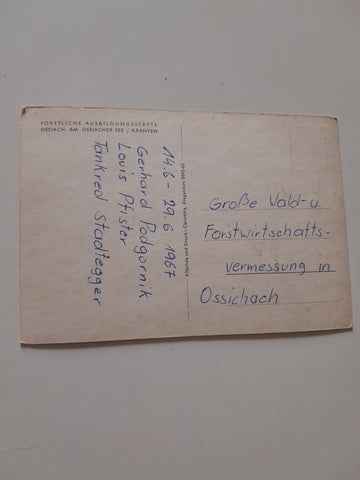 FORSTLICHE AUSBILDUNGSSTÄTTE
OSSIACH AM OSSIACHER SEE / KÄRNTEN
14.6 - 29.6.1967
Gerhard Podgornik
Louis Pfister
Tankred Stadtegger
Klischee und Druck: Carinthia, Klagenfurt
Große Wald- u.
Forstwirtschafts-
vermessung in
Ossichach